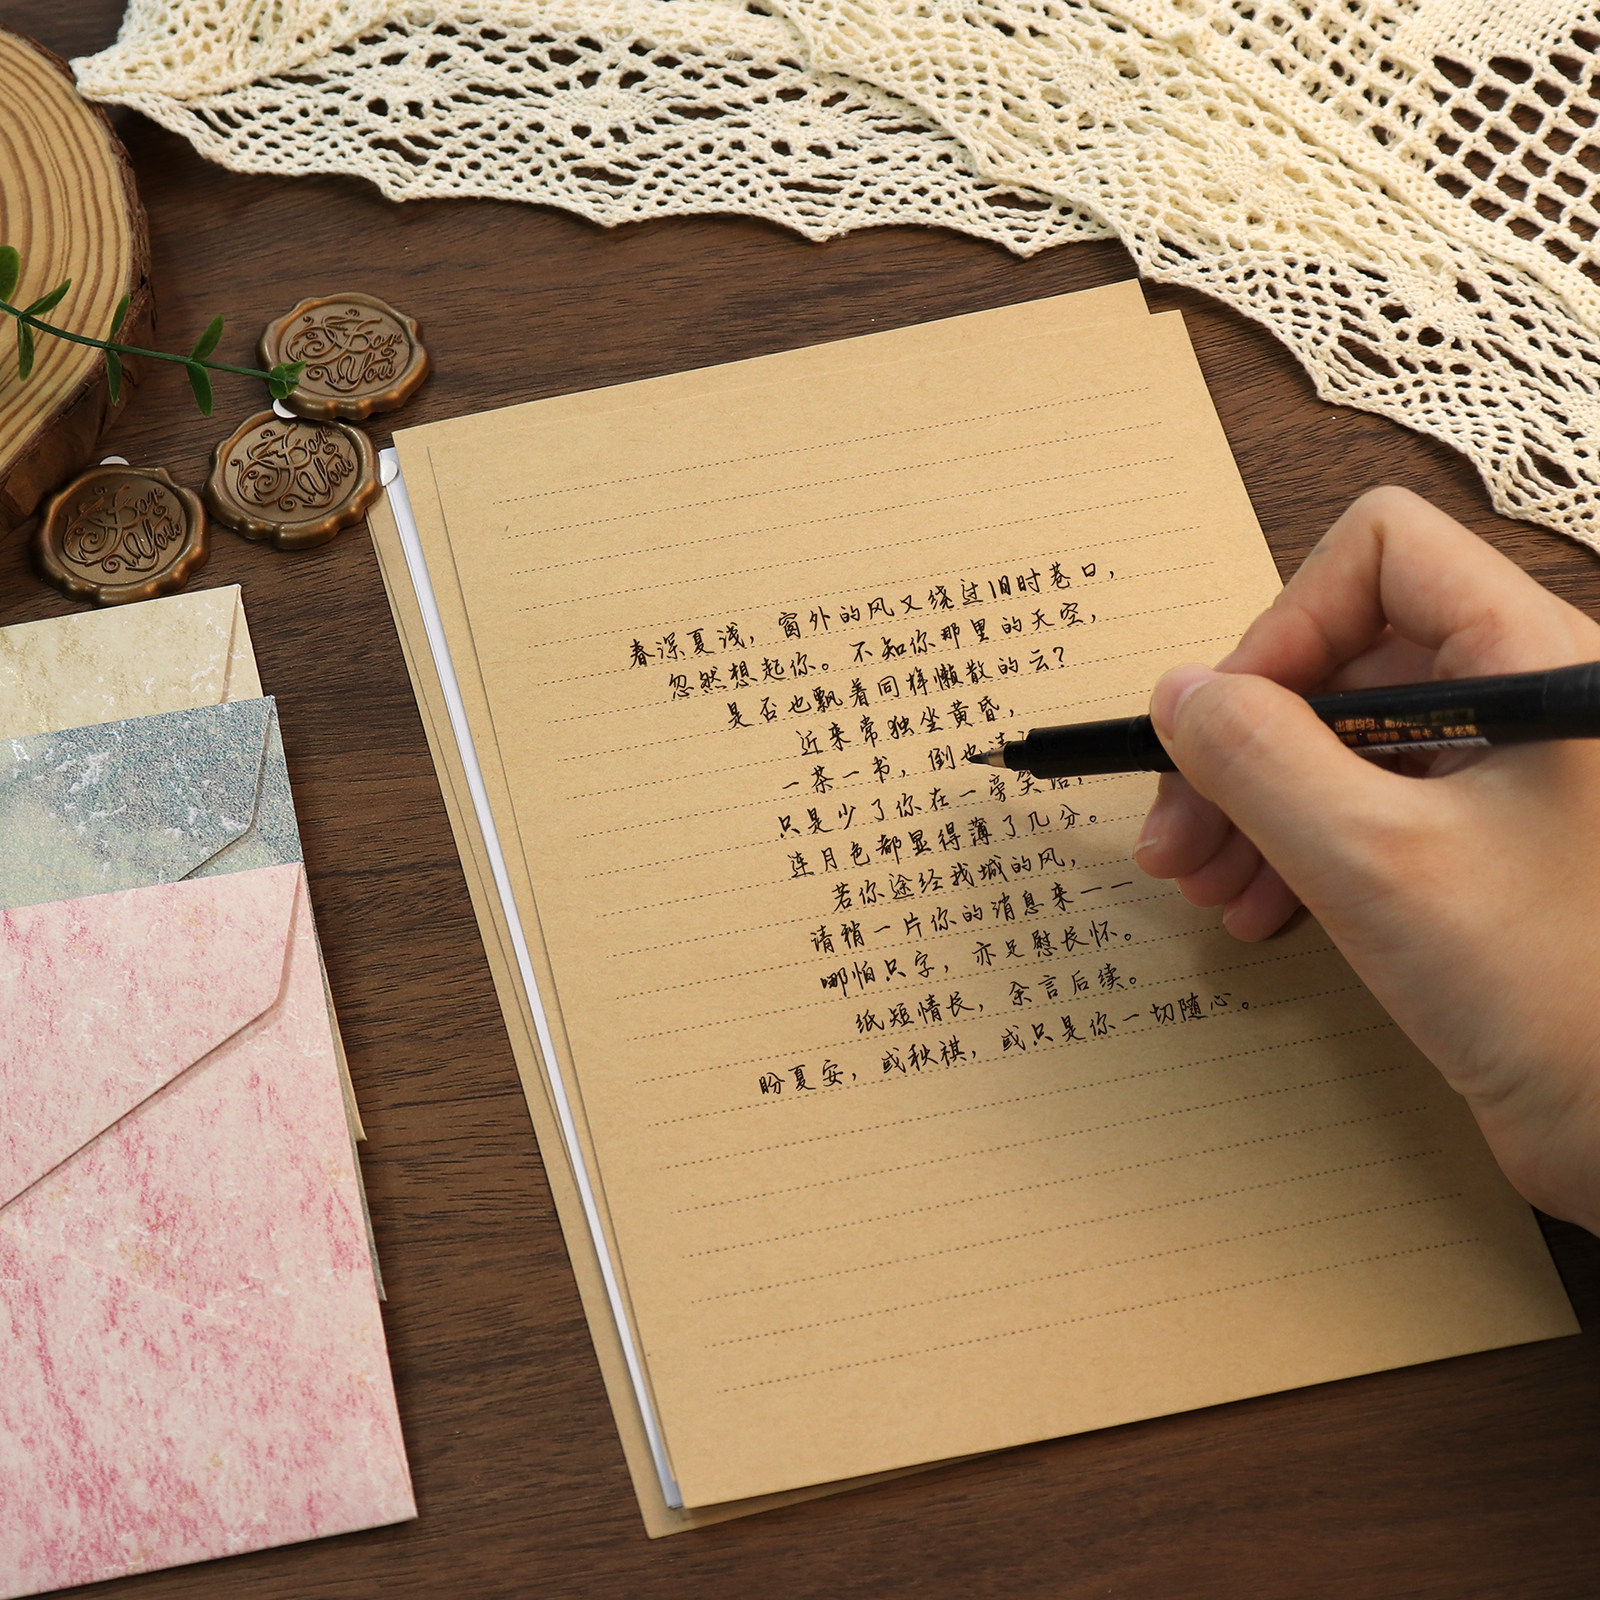 For You
For You
For You
春深夏浅，窗外的风又绕过旧时巷口，
忽然想起你。不知你那里的天空，
是否也飘着同样懒散的云？
近来常独坐黄昏，
一茶一书，倒也
只是少了你在一旁笑语，
连月色都显得薄了几分。
若你途经我城的风，
请稍一片你的消息来——
哪怕只字，亦足慰长怀。
纸短情长，余言后续。
盼夏安，或秋祺，或只是你一切随心。